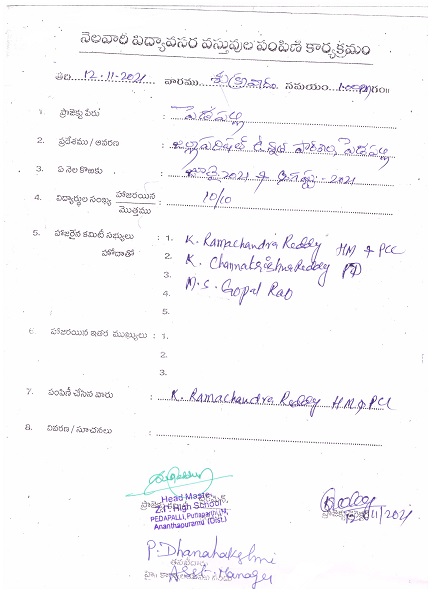 నెలవారి విద్యావసర వస్తువుల పంపిణి కార్యక్రమం
తేది 12-11-2021 వారము శుక్రవారం సమయం
1. ప్రాజెక్టు పేరు : పెడపల్లి
2. ప్రదేశము / ఆవరణ : జిల్లా పరిషత్ ఉన్నత పాఠశాల, పెడపల్లి
3. ఏ నెల కొఱకు : జూలై 2021 & ఆగష్టు - 2021
4. విద్యార్థుల సంఖ్య హాజరయిన / మొత్తము : 10/10
5. హాజరైన కమిటీ సభ్యులు : 1. K. Ramachandra Reddy HM & PCC
హోదాతో 2. K. Channakrishna Reddy PD
3. M.S. Gopal Rao
4.
5.
6. హాజరయిన ఇతర ముఖ్యులు : 1.
2.
3.
7. పంపిణీ చేసిన వారు : K. Ramachandra Reddy HM & PCC
8. వివరణ / సూచనలు :
Head Master
Z.P. High School
PEDAPALLI, Puttaparthi
Ananthapuramu (Dist.)
Reddy
12/11/2021
P. Dhanalakshmi
Asst. Manager